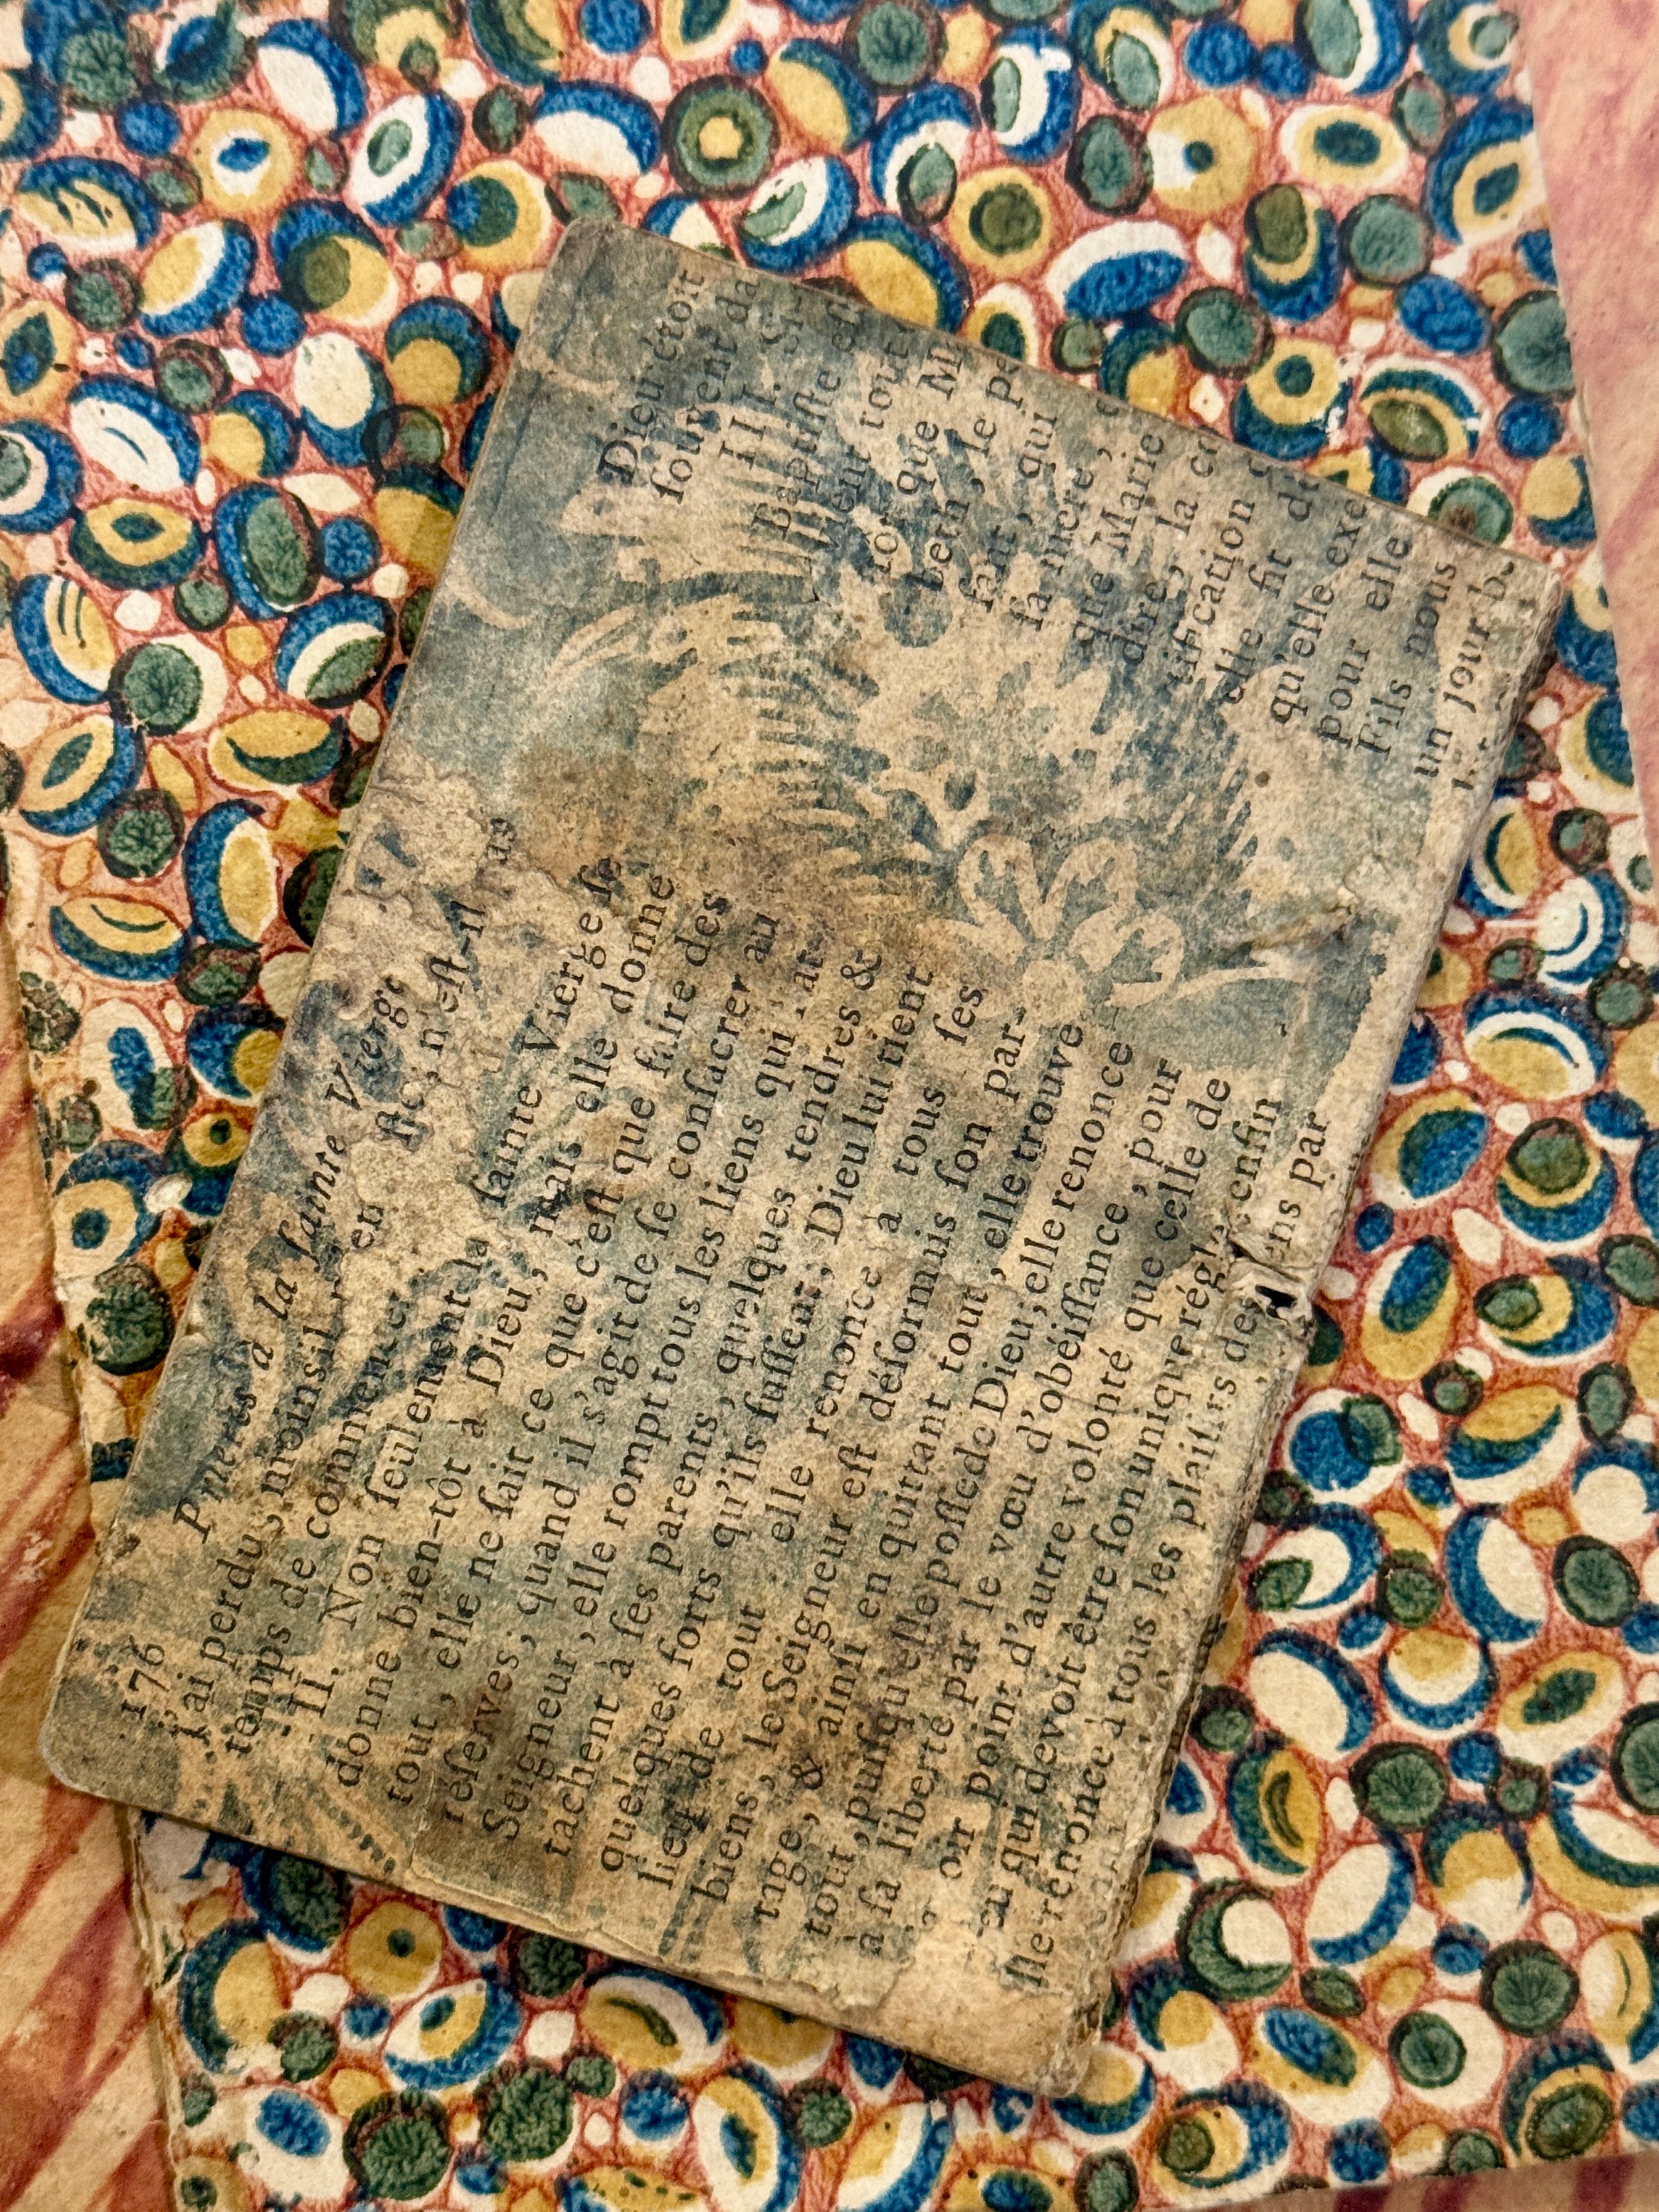 176 Prieres à la ſainte Vierge
j'ai perdu, moins il en n'eſt-il pas
temps de commencer
II. Non ſeulement la ſainte Vierge ſe
donne bien-tôt à Dieu, mais elle donne
tout, elle ne ſait ce que c'eſt que faire des
réſerves; quand il s'agit de ſe conſacrer au
Seigneur, elle rompt tous les liens qui l'at-
tachent à ſes parents, quelques tendres &
quelques forts qu'ils fuſſent; Dieu lui tient
lieu de tout elle renonce à tous ſes
biens, le Seigneur eſt déſormais ſon par-
tage, & ainſi en quittant tout, elle trouve
tout, puiſqu'elle poſſede Dieu; elle renonce
à ſa liberté par le vœu d'obéiſſance, pour
point d'autre volonté que celle de
qui devoit être ſon unique regle; enfin
renonce à tous les plaiſirs des par
Dieu étoit
ſouvent da
III. Si-
Baptiſte
tout
que
beth, le pe
fant, qui
ſa mere,
que Marie
dire, la
tification
elle fit
qu'elle exc
pour elle
Fils nous
un jour